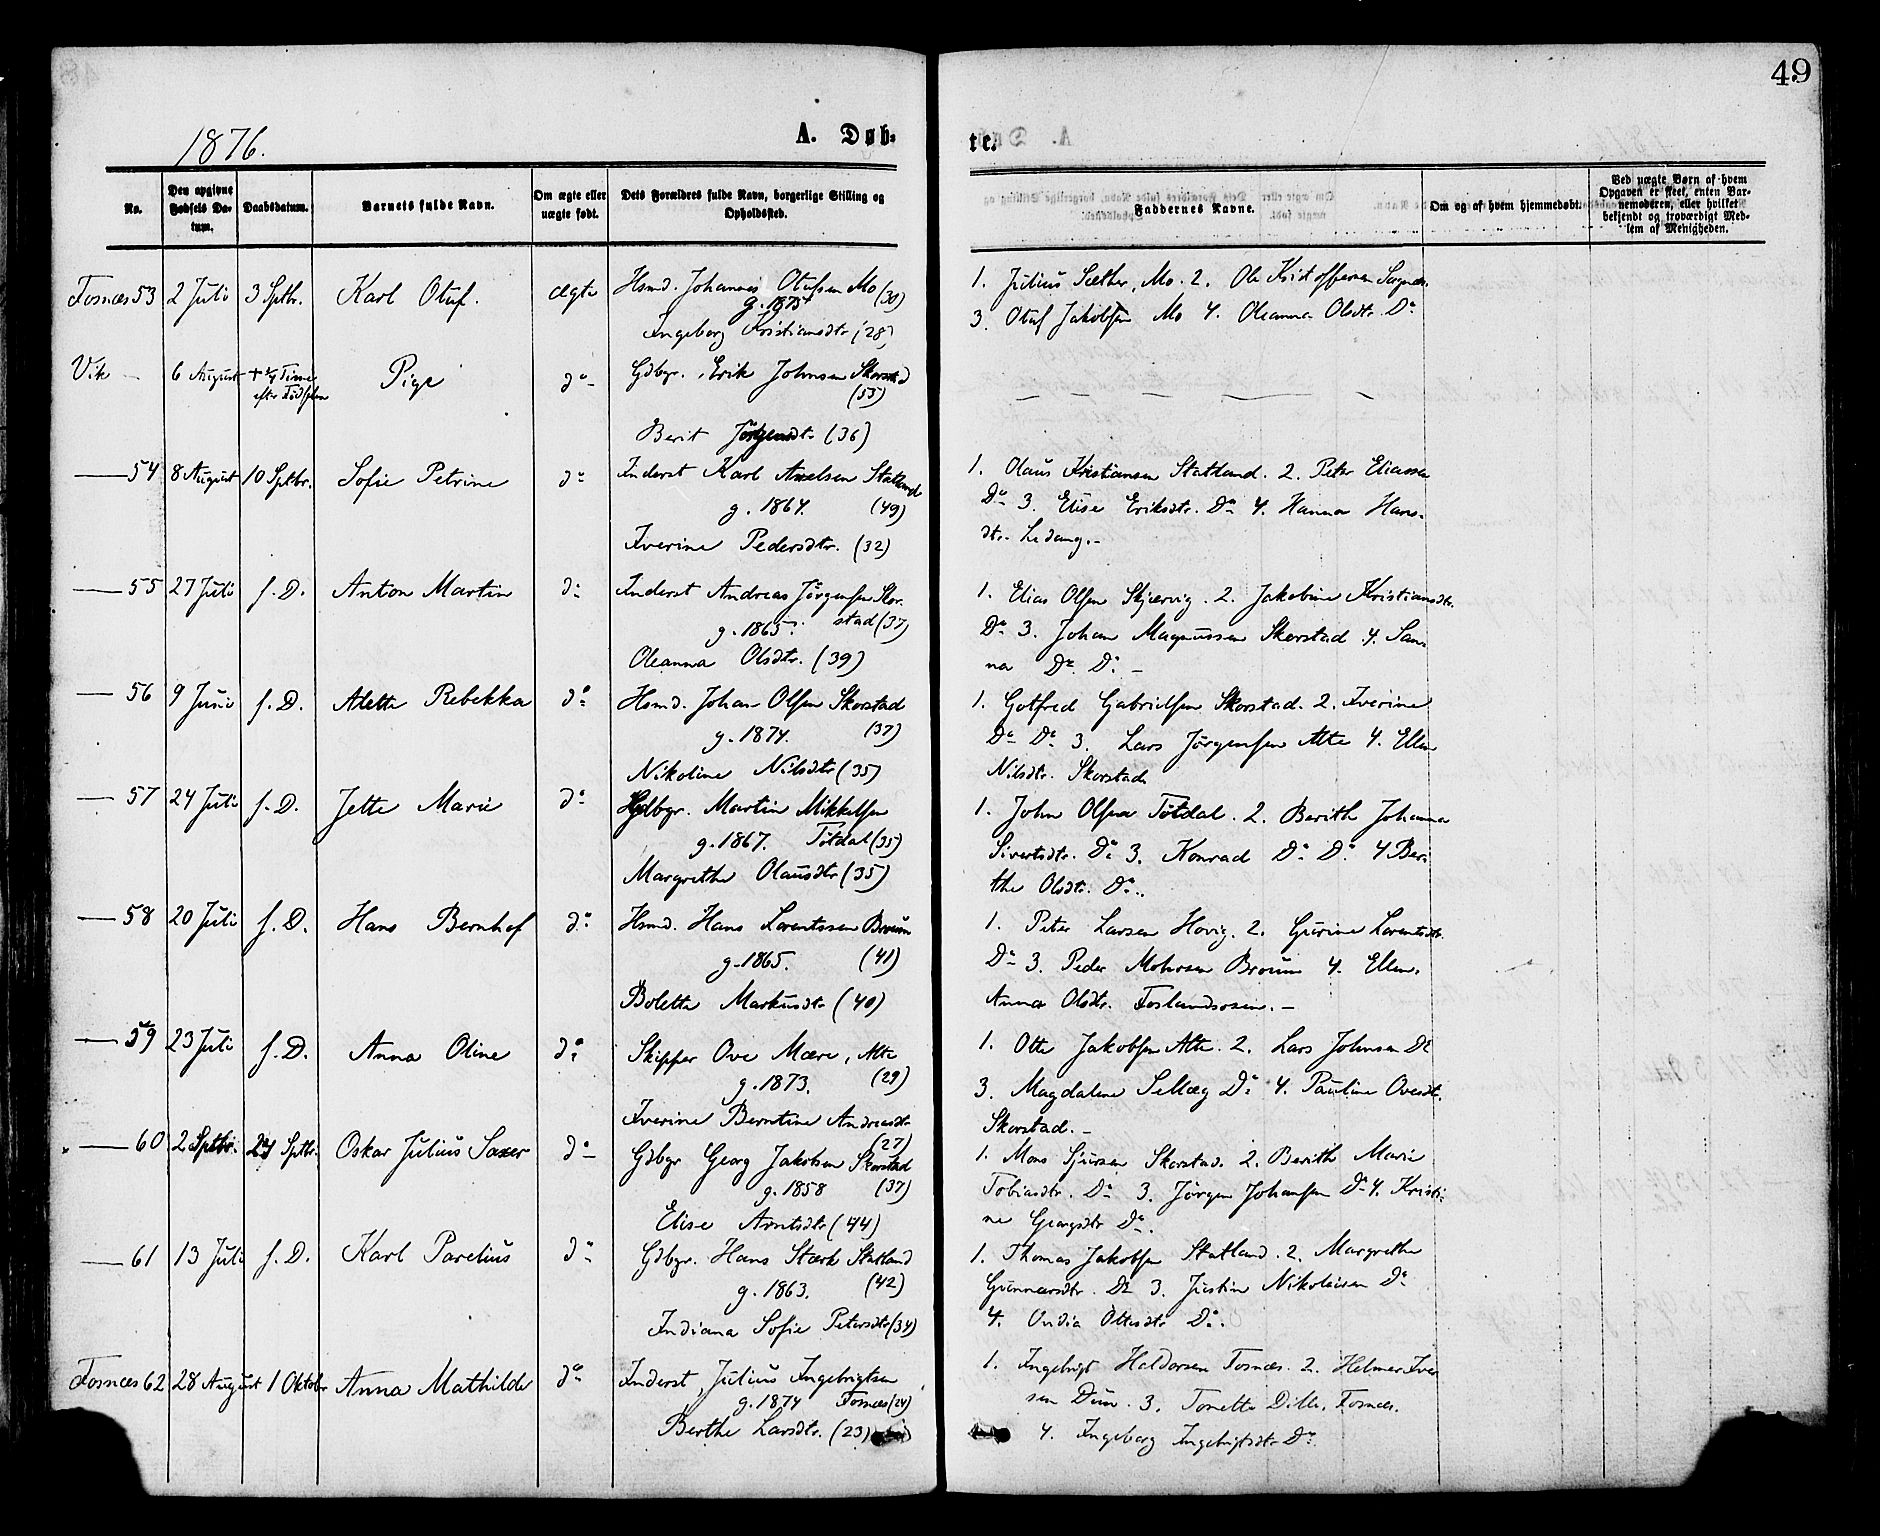 49
1876.
A. Døb-
te.
No.
Den opgivne Fødsels Datum.
Daabsdatum.
Barnets fulde Navn.
Om ægte eller uægte født.
Dets Forældres fulde Navn, borgerlige Stilling og Opholdssted.
Faddernes Navne.
Om og af hvem hjemmedøbt.
Ved uægte Børn af hvem Opgaven er skeet, enten Barnemoderen, eller hvilket bekjendt og troværdigt Medlem af Menigheden.
Fosnæs 53 2 Juli 3 Sptbr. Karl Otuf. ægte Hsmd. Johannes Otufsen Mo (30)
g. 1875
Ingeborg Kristiansdtr (28)
1. Julius Sæther, Mo. 2. Ole Kristoffersen
3. Otuf Jakobsen Mo 4. Oleanna Olsdtr. Do
Vik 6 August + 1/4 Time
efter Fødselen
Pige do Gdbgr. Erik Johnsen Skorstad
(55)
Berit Jörgensdtr (36)
54 8 August 10 Sptbr. Sofie Petrine do Inderst Karl Axelsen Statland
g. 1864. (49)
Iverine Pedersdtr. (32)
1. Olaus Kristiansen Statland. 2. Peter Eliassen
Do 3. Elise Eriksdtr. Do 4. Hanna Hans-
dtr. Ledang.
55 27 Juli s. D. Anton Martin do Inderst Andreas Jörgensen Skor-
g. 1865. stad (37)
Oleanna Olsdtr. (39)
1. Elias Olsen Skjærvig. 2. Jakobine Kristiansdtr.
Do 3. Johan Magnussen Skorstad 4. San-
na Do Do
56 9 Juni s. D. Aletta Rebekka do Hsmd. Johan Olsen Skorstad
g. 1874. (37)
Nikoline Nilsdtr (35)
1. Gotfred Gabrielsen Skorstad. 2. Iverine
Do Do 3. Lars Jörgensen Alte 4. Ellen
Nilsdtr. Skorstad
57 24 Juli s. D. Jette Marie do Gdbgr. Martin Mikkelsen
g. 1867. Tötdal (35)
Margrethe Olausdtr (35)
1. John Olsen Tötdal. 2. Berith Johanna
Sivertsdtr. Do 3. Konrad Do Do 4 Ber-
the Olsdtr. Do.
58 20 Juli s. D. Hans Bernhof do Hsmd. Hans Lorentssen Broum
g. 1865. (41)
Bolette Markusdtr (40)
1. Peter Larsen Hovig. 2. Gurine Lorentsdtr.
Do 3. Peder Mohrsen Broum 4. Ellen
Anna Olsdtr. Foslandsosen.
59 23 Juli s. D. Anna Oline do Skipper Ove Mære, Alte
g. 1873. (29)
Iverine Berntine Andreasdtr
(27)
1. Otte Jakobsen Alte. 2. Lars Johnsen Do
3. Magdalene Sellæg Do 4. Pauline Ovesdt.
Skorstad.
60 2 Sptbr. 24 Sptbr. Oskar Julius Saxer do Gdbgr Georg Jakobsen Skorstad
g. 1858 (37)
Elise Arntsdtr (44)
1. Mons Sjursen Skorstad. 2. Berith Marie
Tobiasdtr. Do 3. Jörgen Johansen Do 4. Kristi-
ne Georgsdtr Do.
61 13 Juli s. D. Karl Parelius do Gdbgr. Hans Stærk Statland
g. 1863. (42)
Indiana Sofie Petersdtr (34)
1. Thomas Jakobsen Statland. 2. Margrethe
Gunnarsdtr. Do 3. Justin Nikolaisen Do
4. Ovidia Ottesdtr Do.
Fosnæs 62 28 August 1 Oktobr Anna Mathilde do Inderst Julius Ingebrigtsen
g. 1874 Fosnæs (24)
Berthe Larsdtr. (23)
1. Ingebrigt Haldorsen Fosnæs. 2. Helmer Iver-
sen Duun. 3. Tonette Dille, Fosnæs.
4. Ingeborg Ingebrigtsdtr Do.